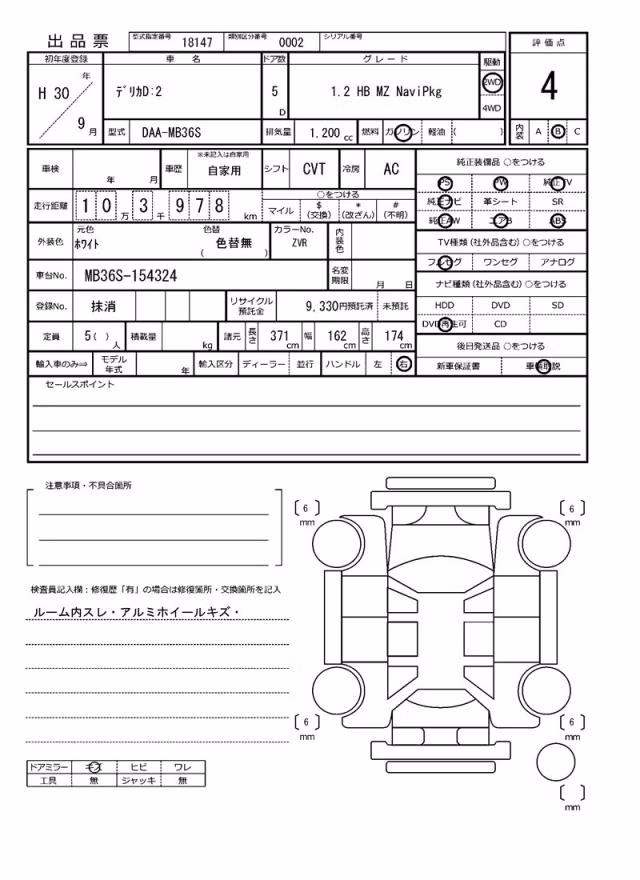 出品票 型式指定番号 18147 類別区分番号 0002 シリアル番号
評価点
4
初年度登録 車名 ドア数 グレード 駆動
H 30 年 9 月 デリカD:2 5 D 1.2 HB MZ NaviPkg 2WD
4WD
型式 DAA-MB36S 排気量 1.200 cc 燃料 ガソリン 軽油 ( ) 内装 A B C
車検 年 月 車歴 ※未記入は自家用 自家用 シフト CVT 冷房 AC
走行距離 10万3千978 km
○をつける
マイル $(交換) *(改ざん) #(不明)
外装色 元色 ホワイト 色替 ( 色替無 ) カラーNo. ZVR 内装色
車台No. MB36S-154324 名変期限 月 日
登録No. 抹消 リサイクル預託金 9,330円預託済 未預託
定員 5( )人 積載量 kg 諸元 長さ 371 cm 幅 162 cm 高さ 174 cm
輸入車のみ⇒ モデル年式 年 輸入区分 ディーラー 並行 ハンドル 左 右
純正装備品 ○をつける
PS PW 純正TV
純正ナビ 革シート SR
純正AW エアB ABS
TV種類 (社外品含む) ○をつける
フルセグ ワンセグ アナログ
ナビ種類 (社外品含む) ○をつける
HDD DVD SD
DVD再生可 CD
後日発送品 ○をつける
新車保証書 車輌取説
セールスポイント
注意事項・不具合箇所
検査員記入欄：修復歴「有」の場合は修復箇所・交換箇所を記入
ルーム内スレ・アルミホイールキズ・
ドアミラー キズ ヒビ ワレ
工具 無 ジャッキ 無
[ 6 ] mm
[ 6 ] mm
[ 6 ] mm
[ 6 ] mm
[ ] mm